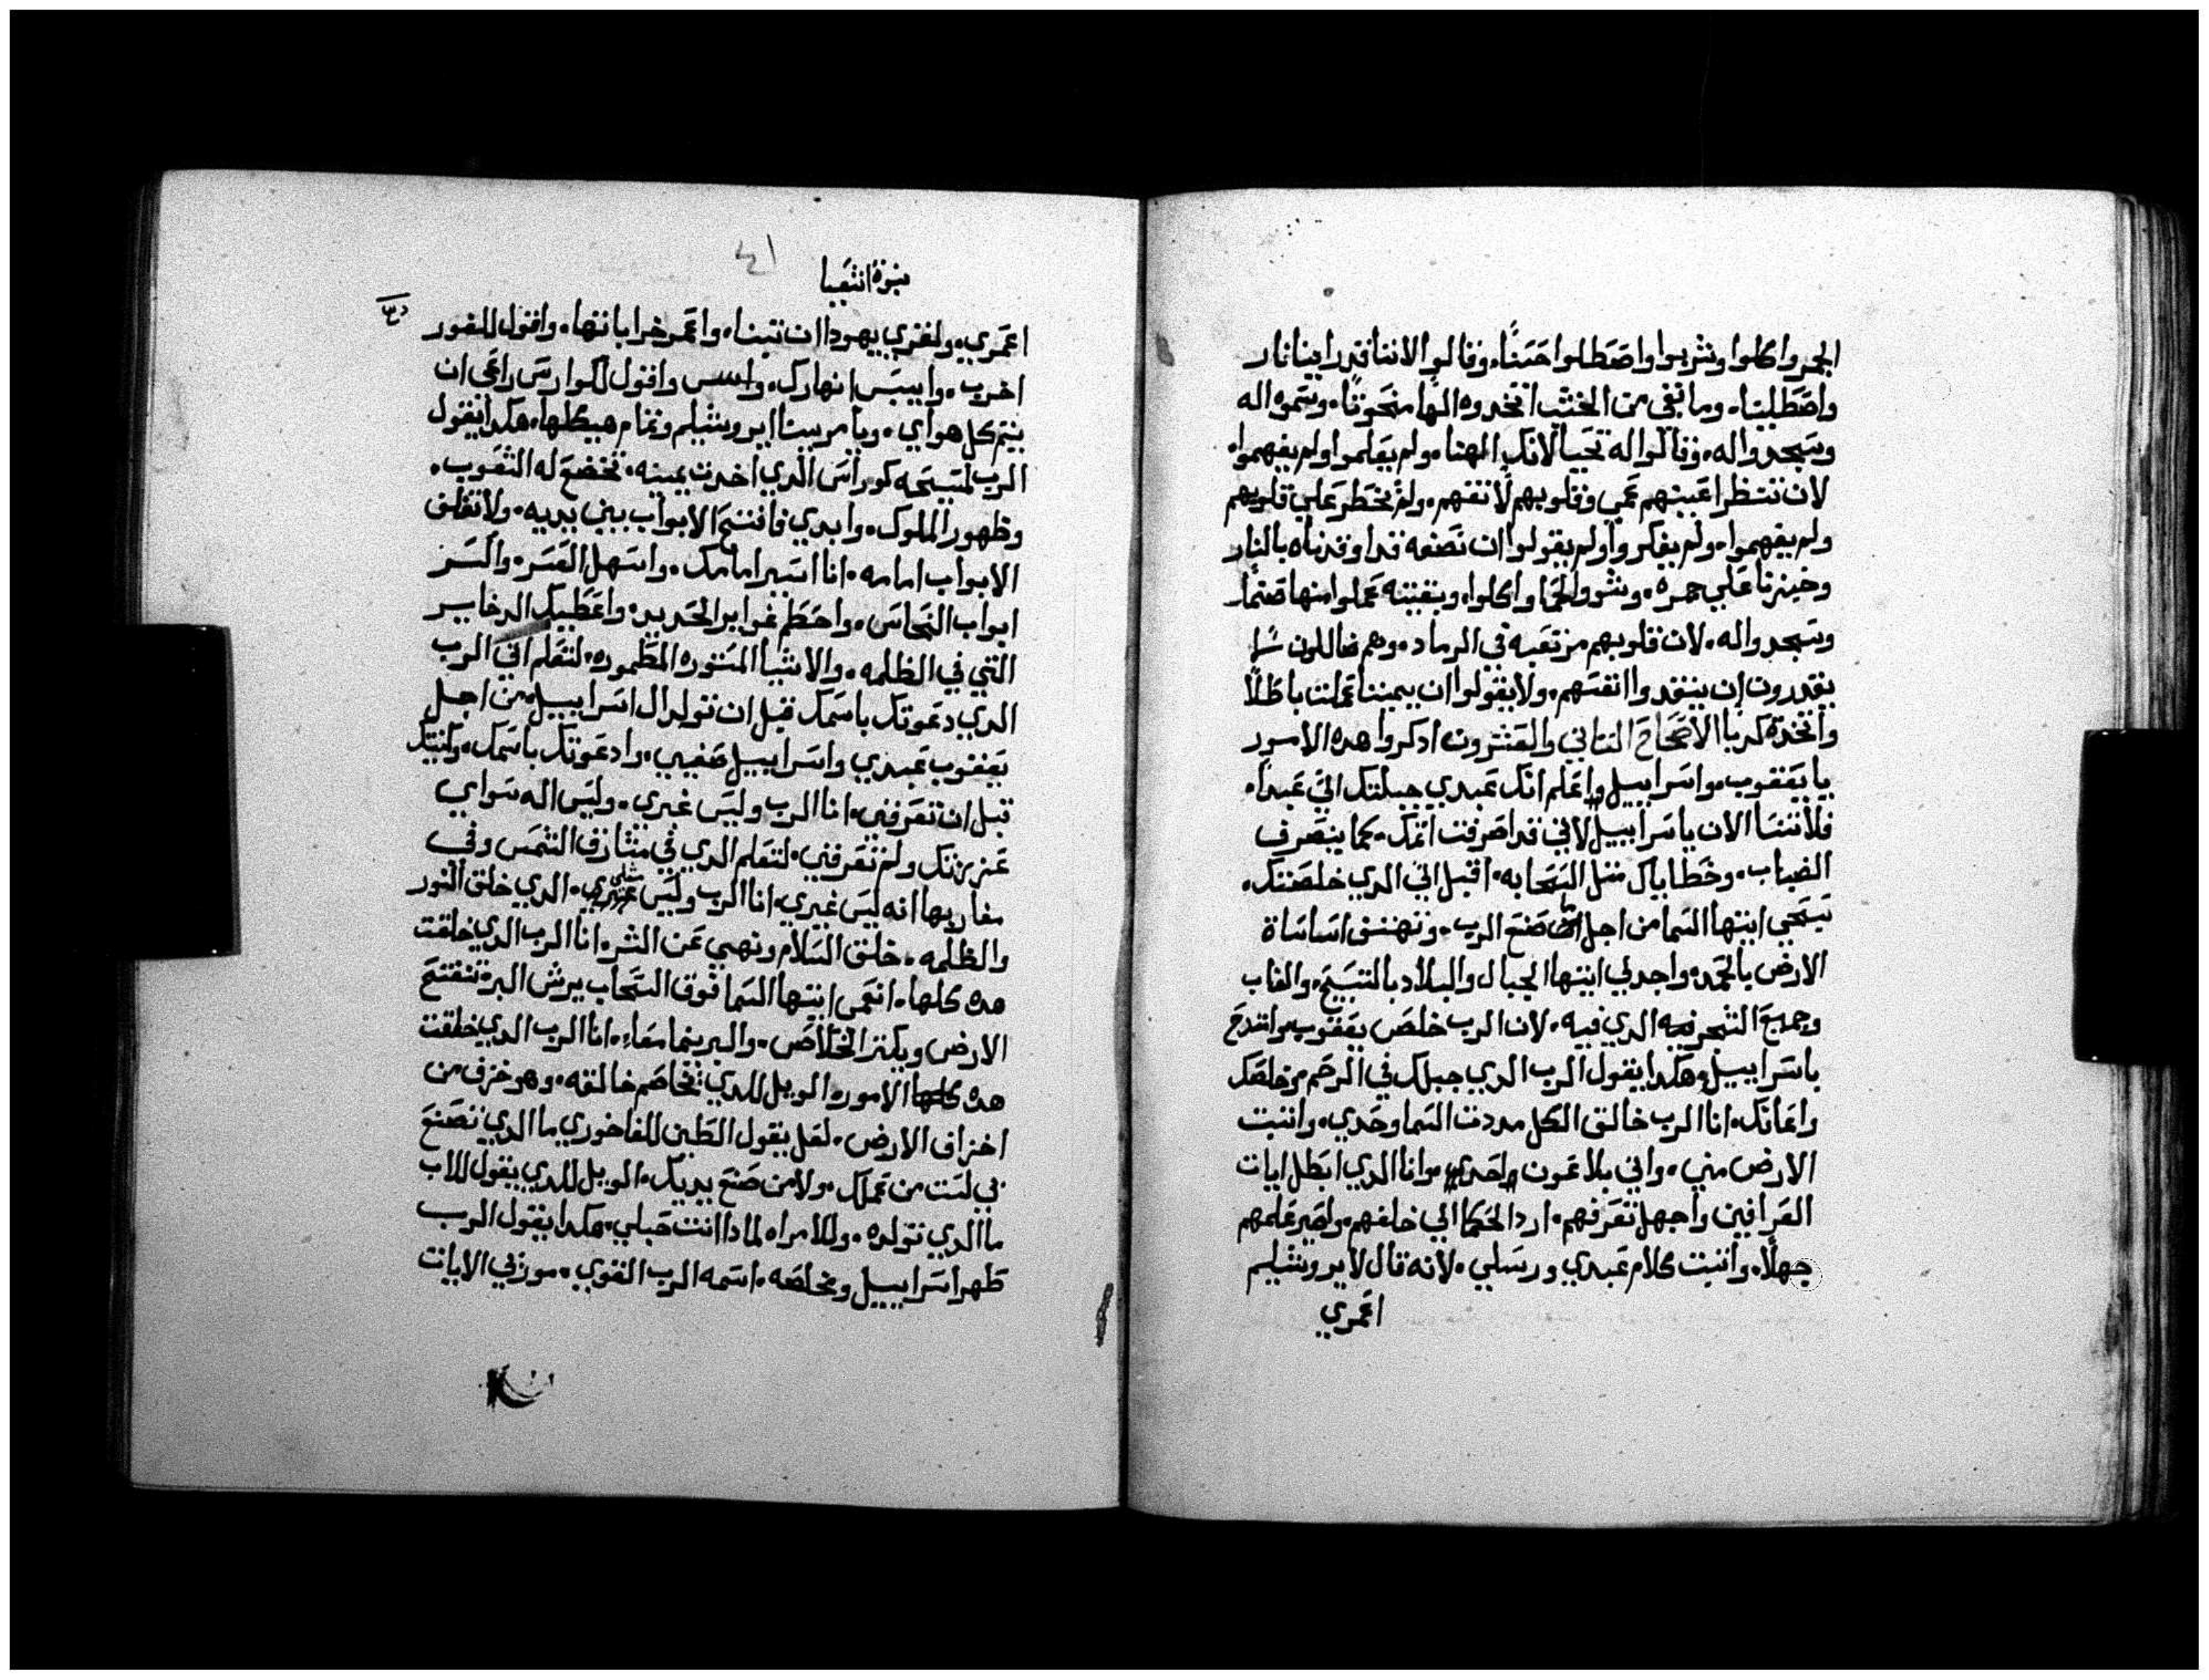 الجمر واكلوا وشربوا واصطلوا حسنًا، وقالوا لاننا قد راينا نار
واصطلينا. وما تبقى من الخشب اتخدوه الهًا منحوتًا. وسموه اله
وسجدوا له. وقالوا له نجينا لانك الهنا. ولم يعلموا ولم يفهموا.
لان تنتظر اعينهم عمي وقلوبهم لا تفهم. ولم يخطر علي قلوبهم
ولم يفهموا. ولم يفكروا ولم يقولوا ان نصفه قد اوقدناه بالنار
وخبزنا علي جمره. وشووا لحمًا واكلوا. وبقيته عملوا منها صنمًا.
وسجدوا له. لان قلوبهم مرتعبه في الرماد. وهم ضاللون
يقدرون ان ينقدوا انفسهم. ولا يقولوا ان يميننا عملت باطلًا
واتخدة كدبا الاصحاح التاني والعشرون ادكروا هده الامور
يا يعقوب. واسراييل واعلم انك عبدي جبلتك الي عبدًا.
فلا تنسا الان ياسراييل لاني قد اصرفت اتمك. كما ينصرف
الضباب. وخطاياك متل السحابه. اقبل الي الدي خلصتك.
تبتهجي ايتها السما من اجل ما صنع الرب. وتهتف اساساة
الارض بالحمد. واجدلي ايتها الجبال والبلاد بالتسبيح. والغاب
وجميع الشجر الدي فيه. لان الرب خلص يعقوب. وامتدح
باسراييل. هكدا يقول الرب الدي جبلك في الرحم وخلصك
واعانك. انا الرب خالق الكل مددت السما وحدي. واتبت
الارض مني. واني بلا عون واحدي. وانا الدي ابطل ايات
العرافين واجهل تعرفهم. ارد الحكما الي خلفهم. واصير علمهم
جهلًا. واتبت كلام عبدي ورسلي. لانه قال لايروشليم
اعمري
نبوة اشعيا
اعمري. ولقري يهودا ان تبنا. واعمر خراباتها. واقول للغور
اخرب. واييبس انهارك. واقول لكوارس راعي ان
يتم كل هواي. ويامر ببنا ايروشليم وتمام هيكلها. هكدا يقول
الرب لمسيحه كوراس الدي اخدت يمينه. تخضع له الشعوب.
وظهور الملوك. وابدي فافتح الابواب بين يديه. ولا تغلق
الابواب امامه. انا اسير امامك. واسهل العسر. واكسر
ابواب النحاس. واحطم غوابر الحديد. واعطيك الدخايير
التي في الظلمه. والاشيا المستوره المطموره. لتعلم اني الرب
الدي دعوتك باسمك قبل ان تولد ال اسراييل. من اجل
يعقوب عبدي واسراييل صفيي. وادعوتك باسمك. وكنيتك
قبل ان تعرفني. انا الرب وليس غيري. وليس اله سواي
عززتك ولم تعرفني. لتعلم الدي في مشارق الشمس وفي
مغاربها انه ليس غيري. انا الرب وليس مثلي. الدي خلق النور
والظلمه. خلق السلام ونهي عن الشر. انا الرب الدي خلقت
هده كلها. انعمي ايتها السما فوق السحاب يرش البر. تنفتح
الارض ويكتر الخلاص. والبر ينما معاء. انا الرب الدي خلقت
هده كلها الامور. الويل للدي يخاصم خالقه. وهو خزف من
اخزاف الارض. لعل يقول الطين للفاخوري ما الدي تصنع
بي لست من عملك. ولا من صنع يديك. الويل للدي يقول للاب
ما الدي تولده. وللامراه لمادا انت حبلي. هكدا يقول الرب
طهر اسراييل ومخلصه. اسمه الرب القوي. موزني الايات